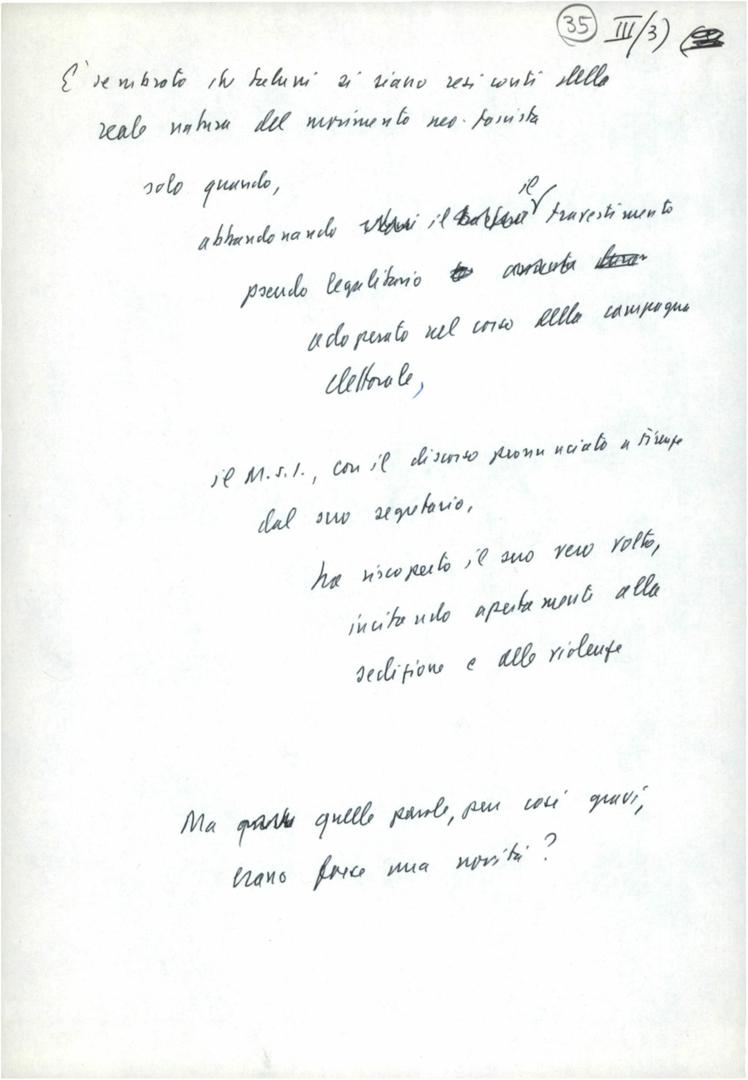 35 III/3)
E' sembrato che taluni si siano resi conti della
reale natura del movimento neo-fascista
solo quando,
il
abbandonando il travestimento
pseudo legalitario
adoperato nel corso della campagna
elettorale,
il M.S.I., con il discorso pronunciato a Firenze
dal suo segretario,
ha riscoperto il suo vero volto,
incitando apertamente alla
sedizione e alla violenza
Ma quelle parole, pur così gravi,
erano forse una novità?